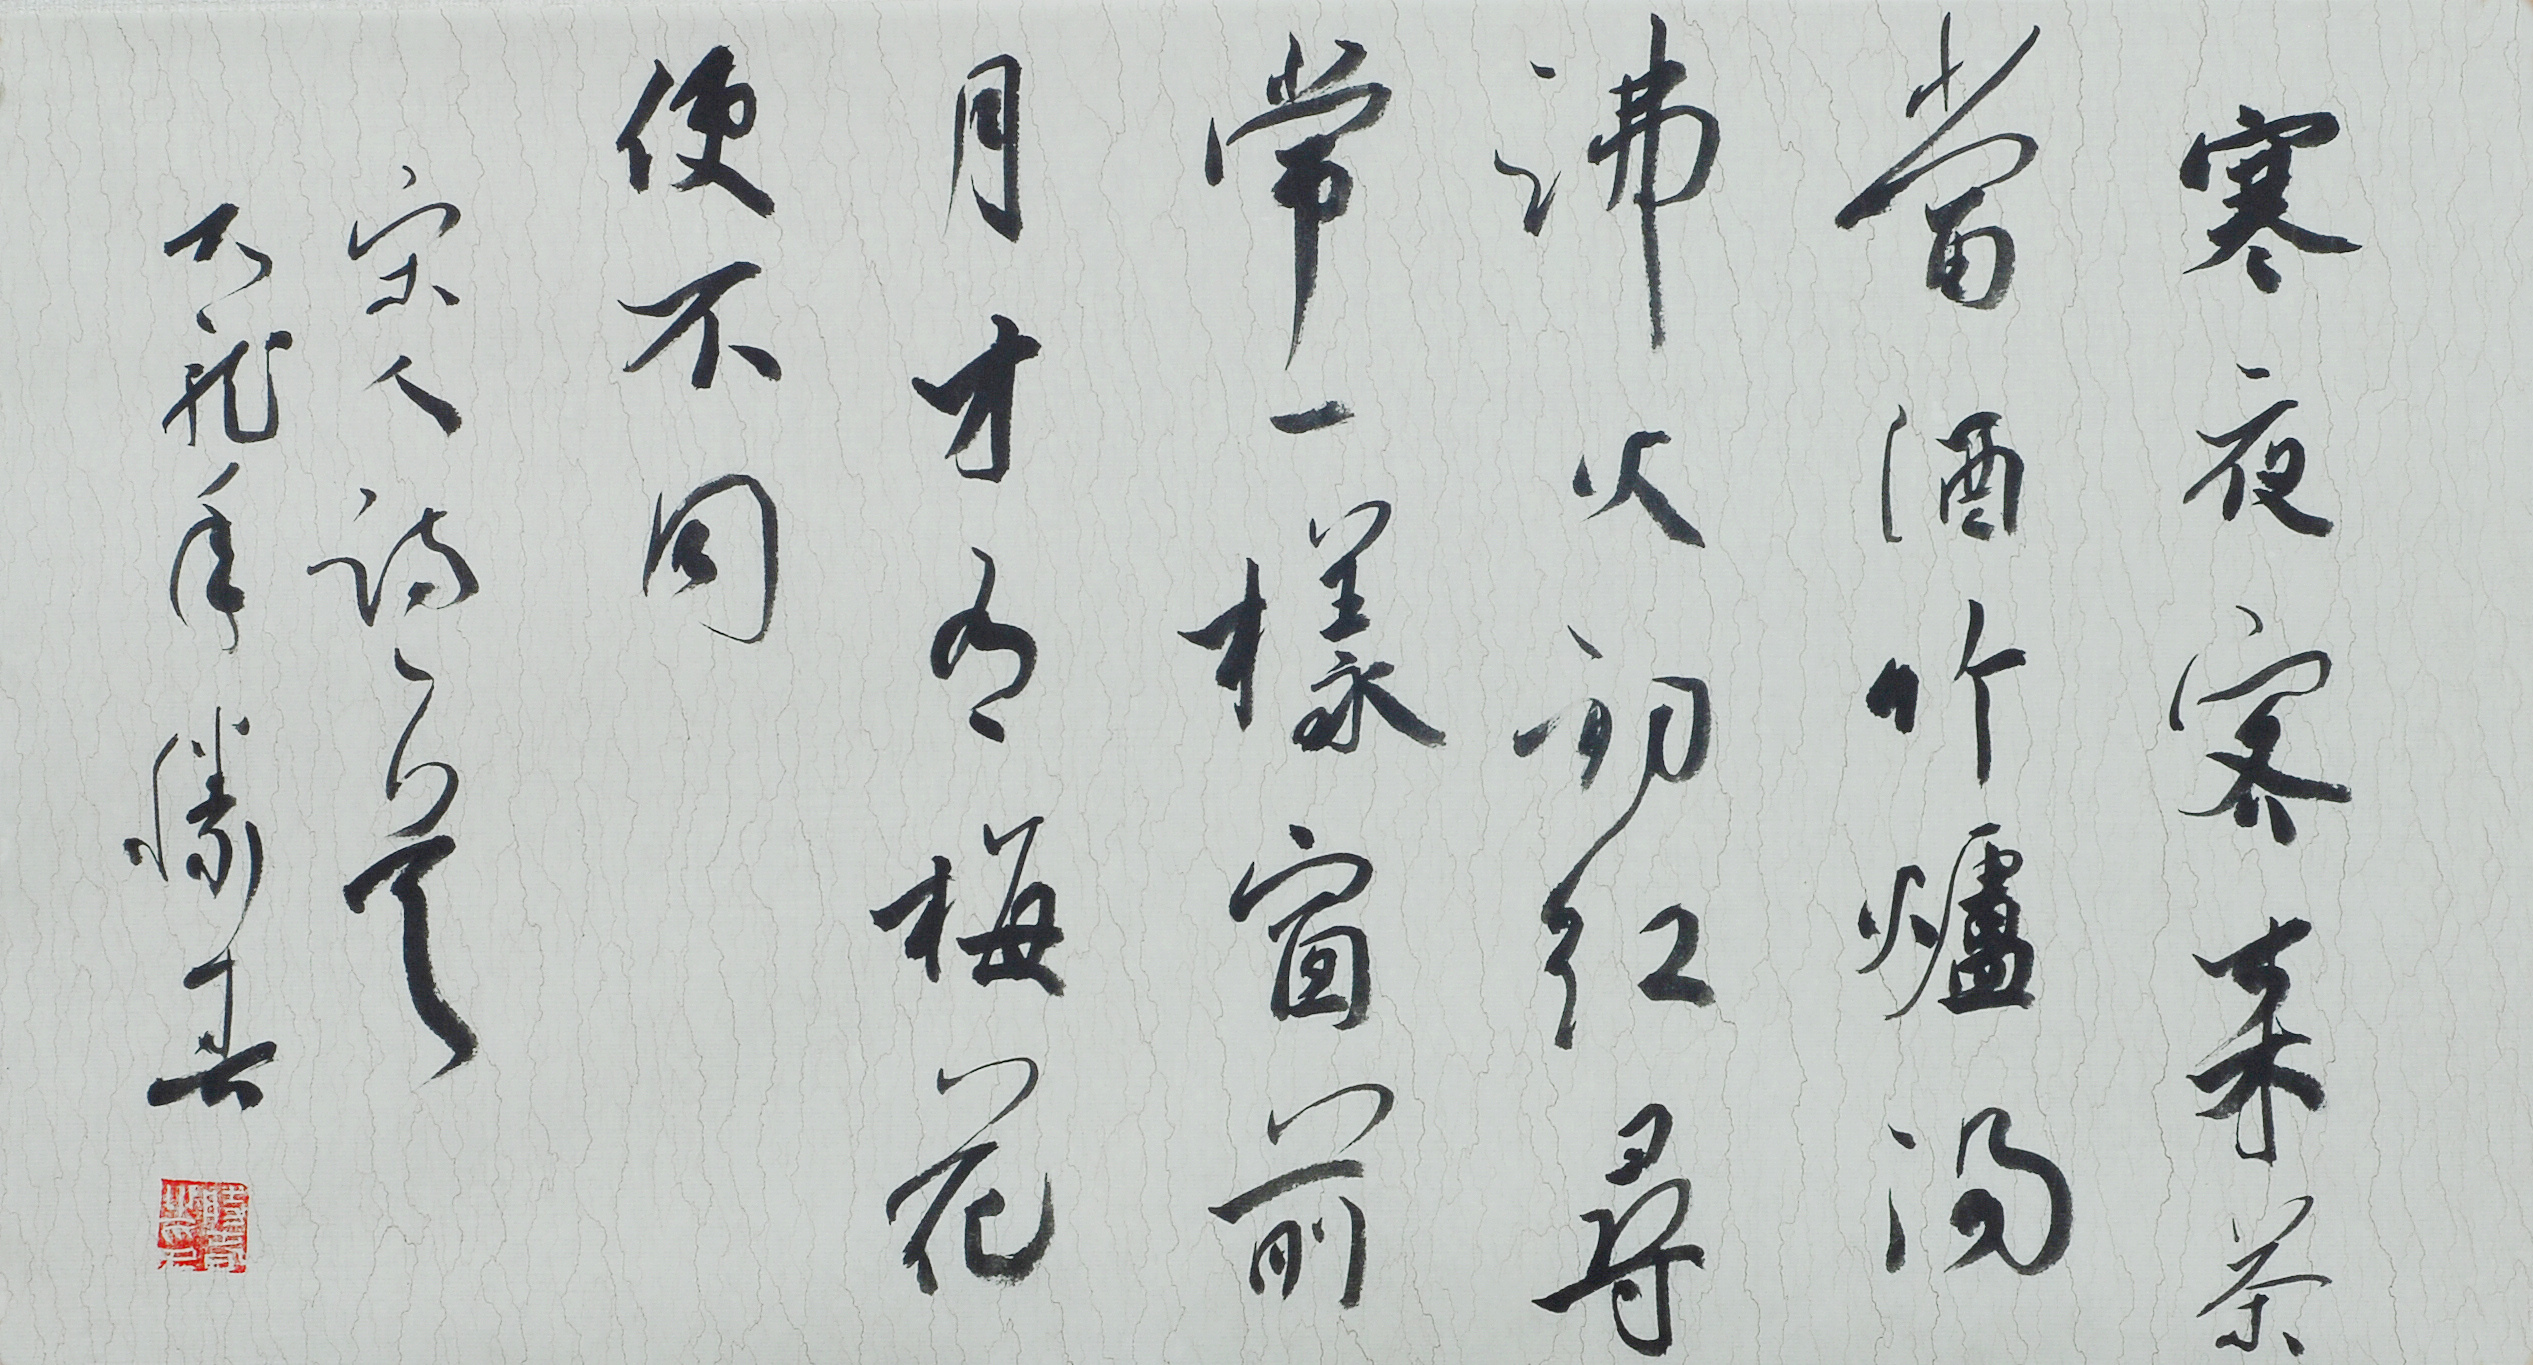 寒夜客來茶
當酒竹爐湯
沸火初紅尋
常一樣窗前
月才有梅花
便不同
宋人詩一首
龍年勝